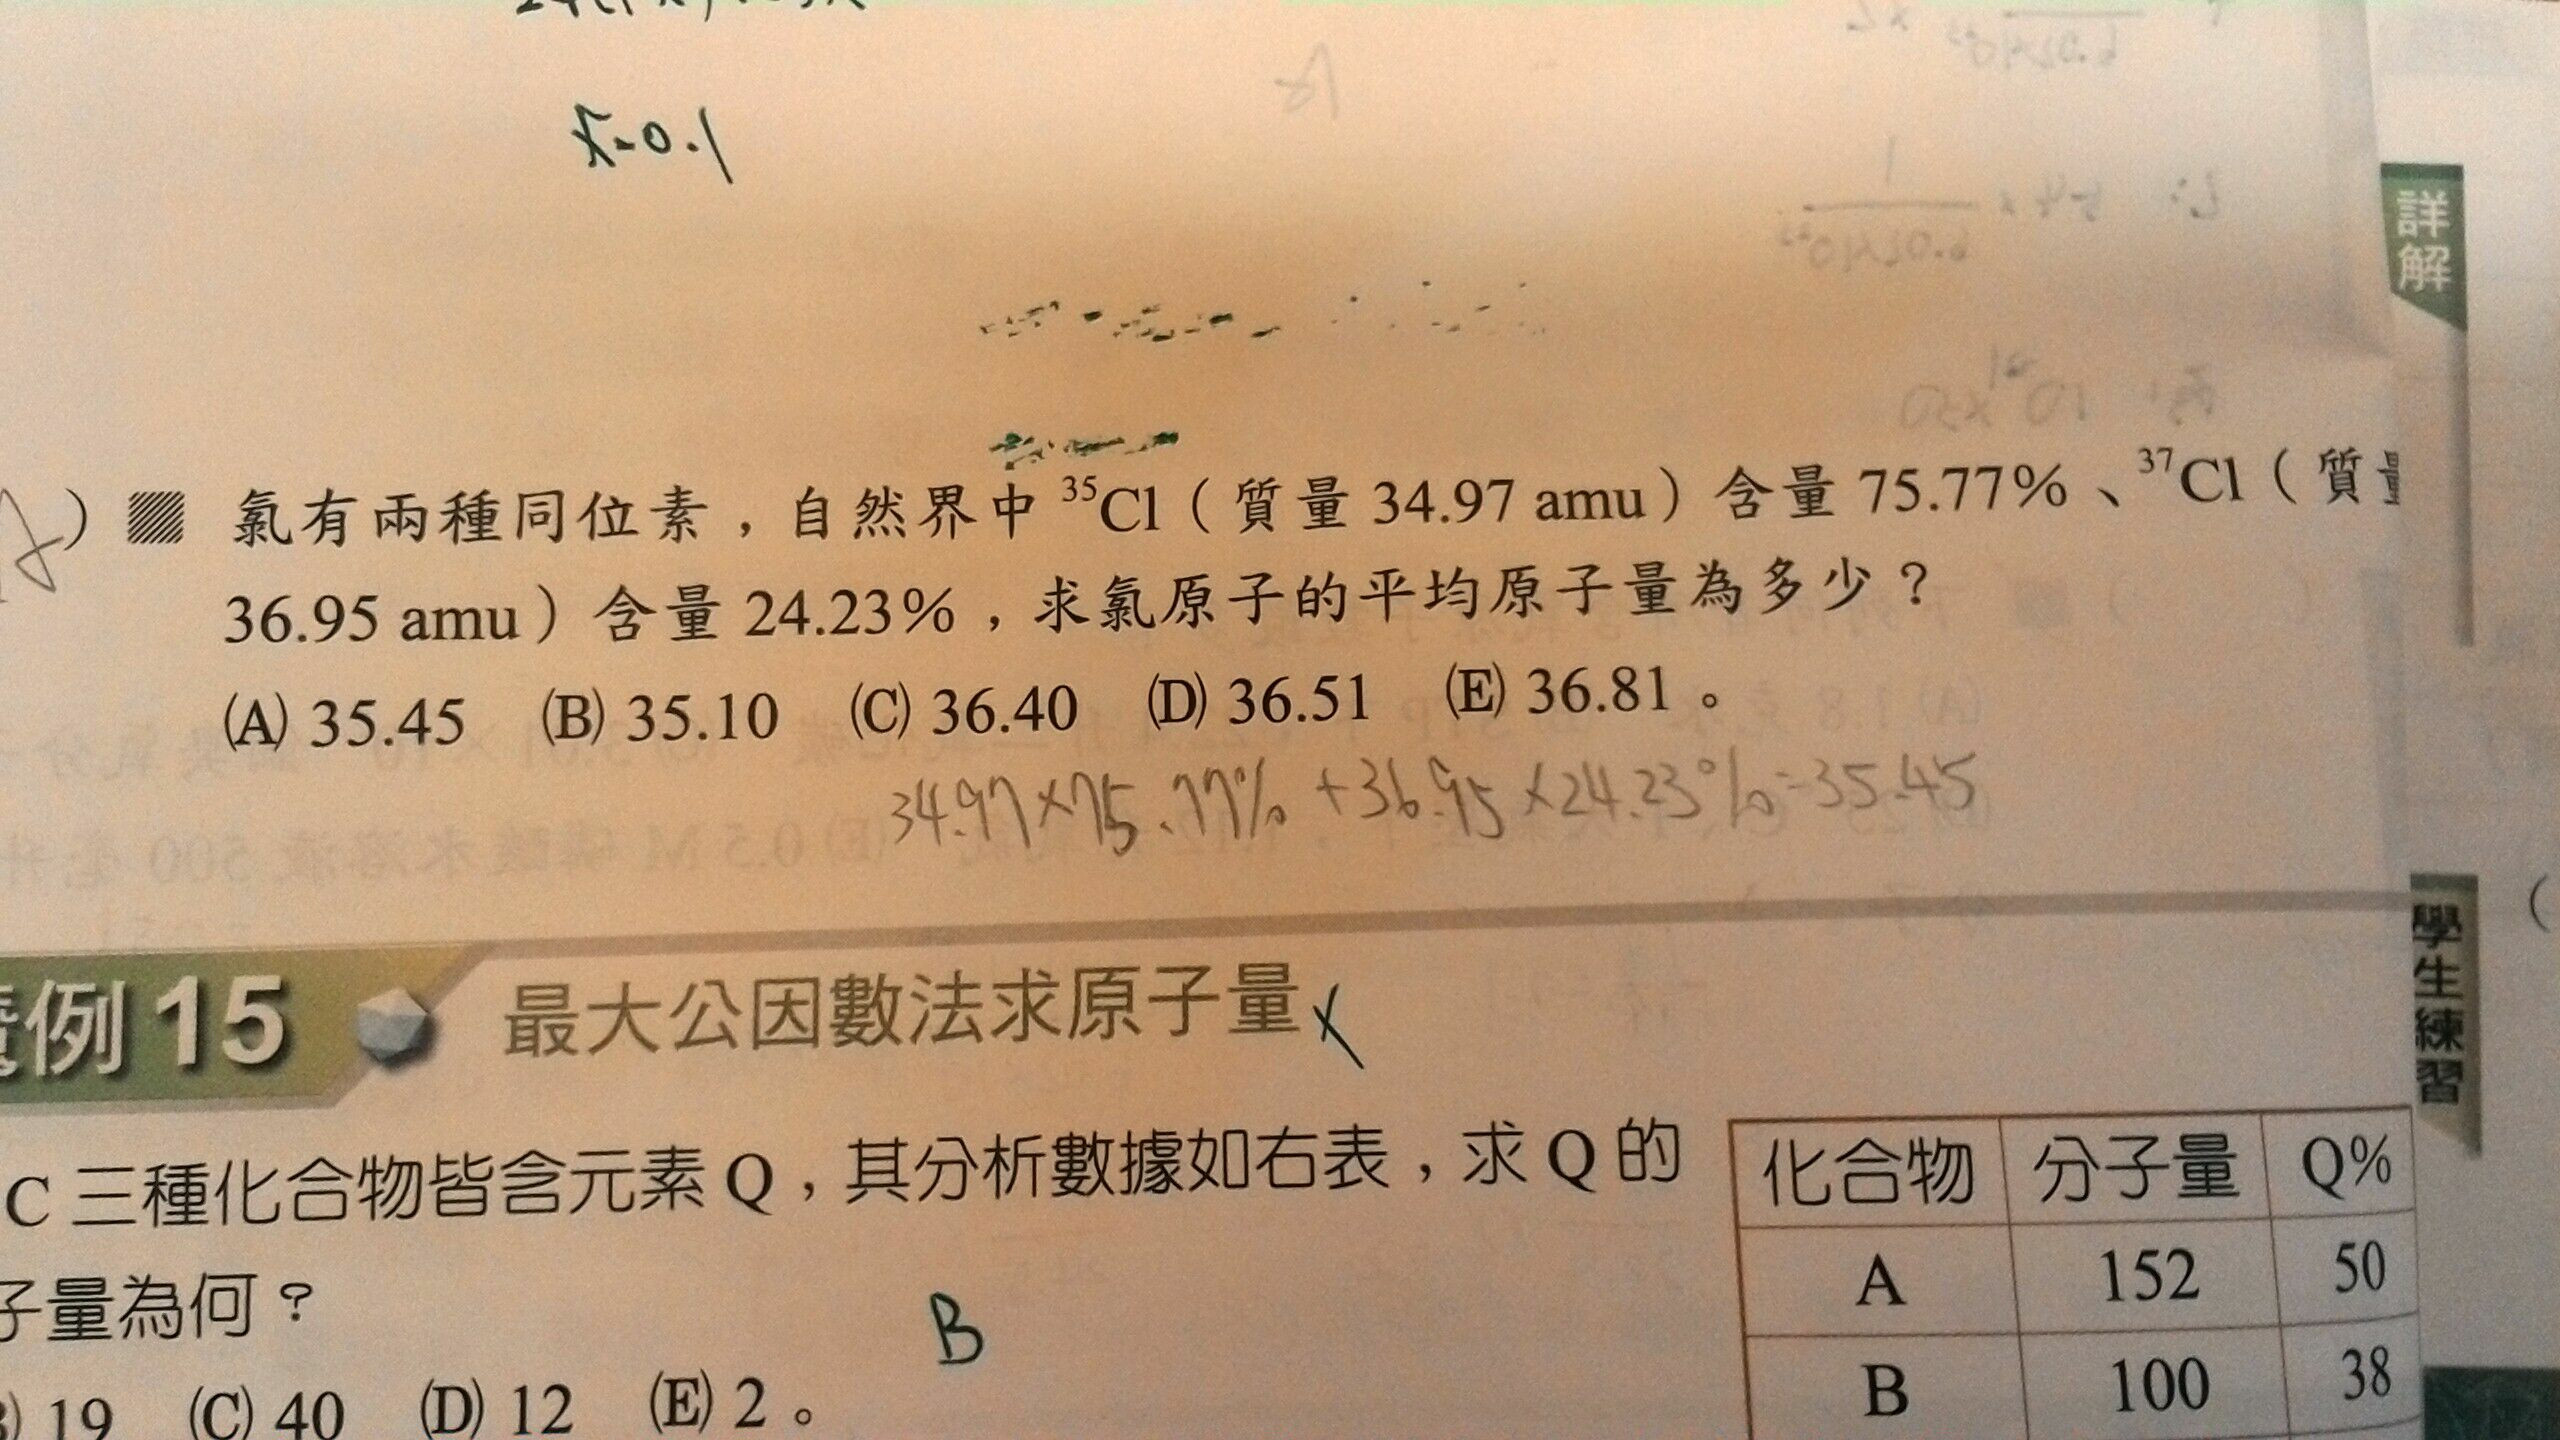 x=0.1
詳解
氯有兩種同位素，自然界中 ³⁵Cl（質量 34.97 amu）含量 75.77%、³⁷Cl（質量
36.95 amu）含量 24.23%，求氯原子的平均原子量為多少？
(A) 35.45 (B) 35.10 (C) 36.40 (D) 36.51 (E) 36.81。
34.97×75.77%+36.95×24.23%=35.45
學生練習
例 15 最大公因數法求原子量 x
C 三種化合物皆含元素 Q，其分析數據如右表，求 Q 的
子量為何？
B
19 (C) 40 (D) 12 (E) 2。
化合物 分子量 Q%
A 152 50
B 100 38